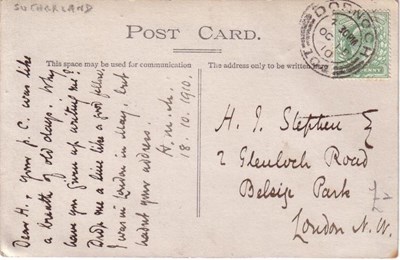 SUTHERLAND
POST CARD.
This space may be used for communication
The address only to be written
DORNOCH
OC
10
Dear H. your p.c. was like
a breath of old days. Why
have you given up writing me?
Drop me a line like a good fellow,
I was in London in May, but
hadn't your address.
H.M.
18.10.1910.
H. J. Stephen
2 Glenloch Road
Belsize Park
London N.W.
£2